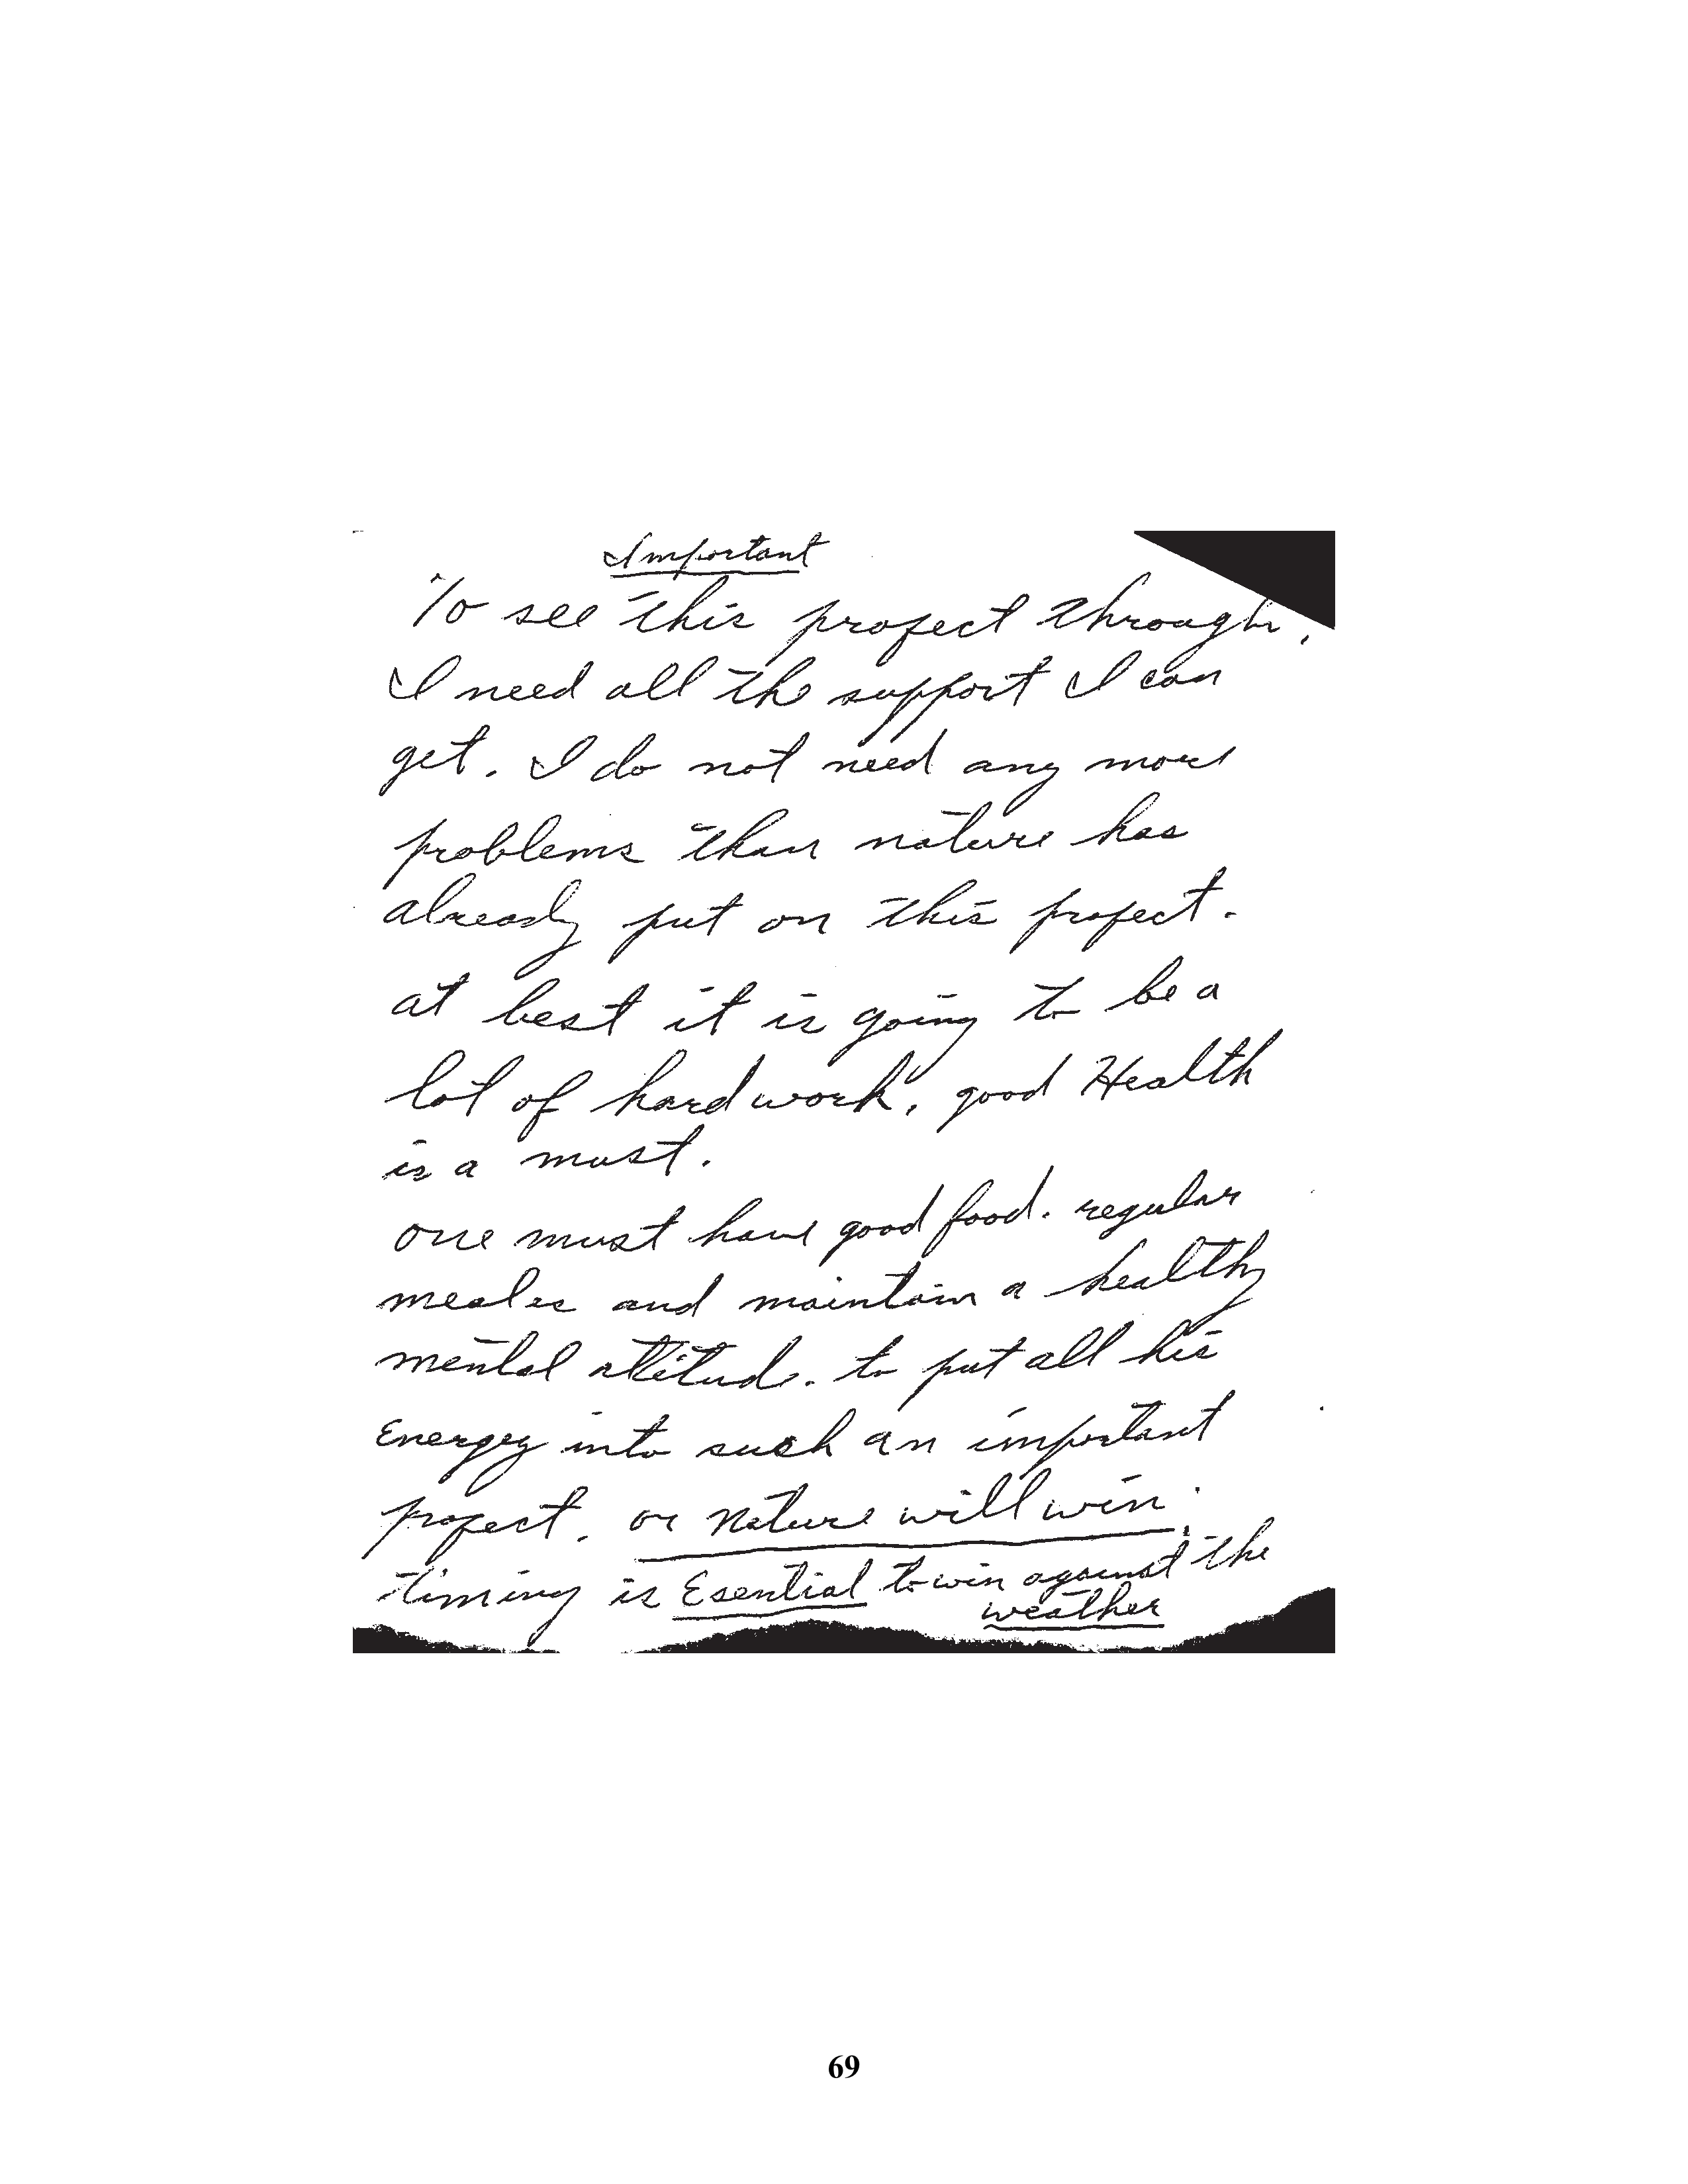 Important
To see this project through,
I need all the support I can
get. I do not need any more
problems than nature has
already put on this project.
at best it is going to be a
lot of hard work, good Health
is a must.
one must have good food. regular
meales and maintain a healthy
mental attitude. to put all his
Energey into such an important
project. or nature will win.
timing is Esential to win against the
weather
69